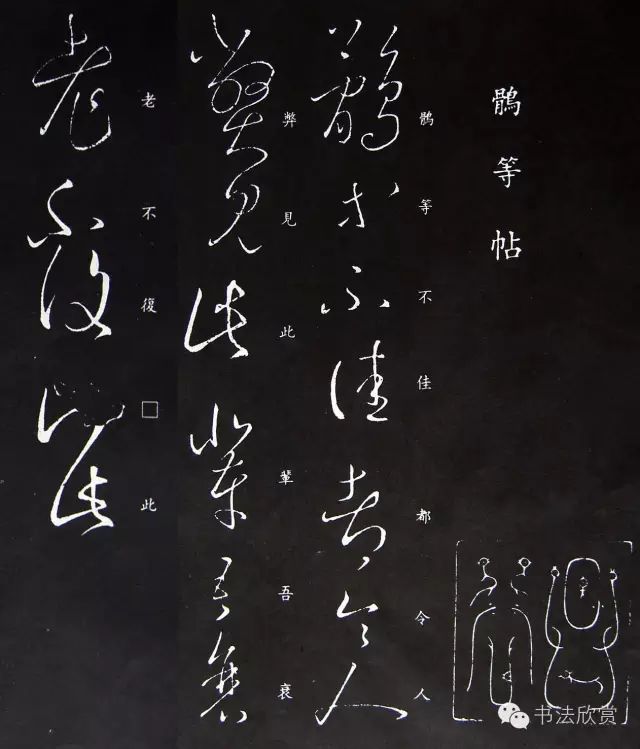 鶻等帖
鶻等不佳都令人
弊見此輩吾衰
老不復□此
书法欣赏